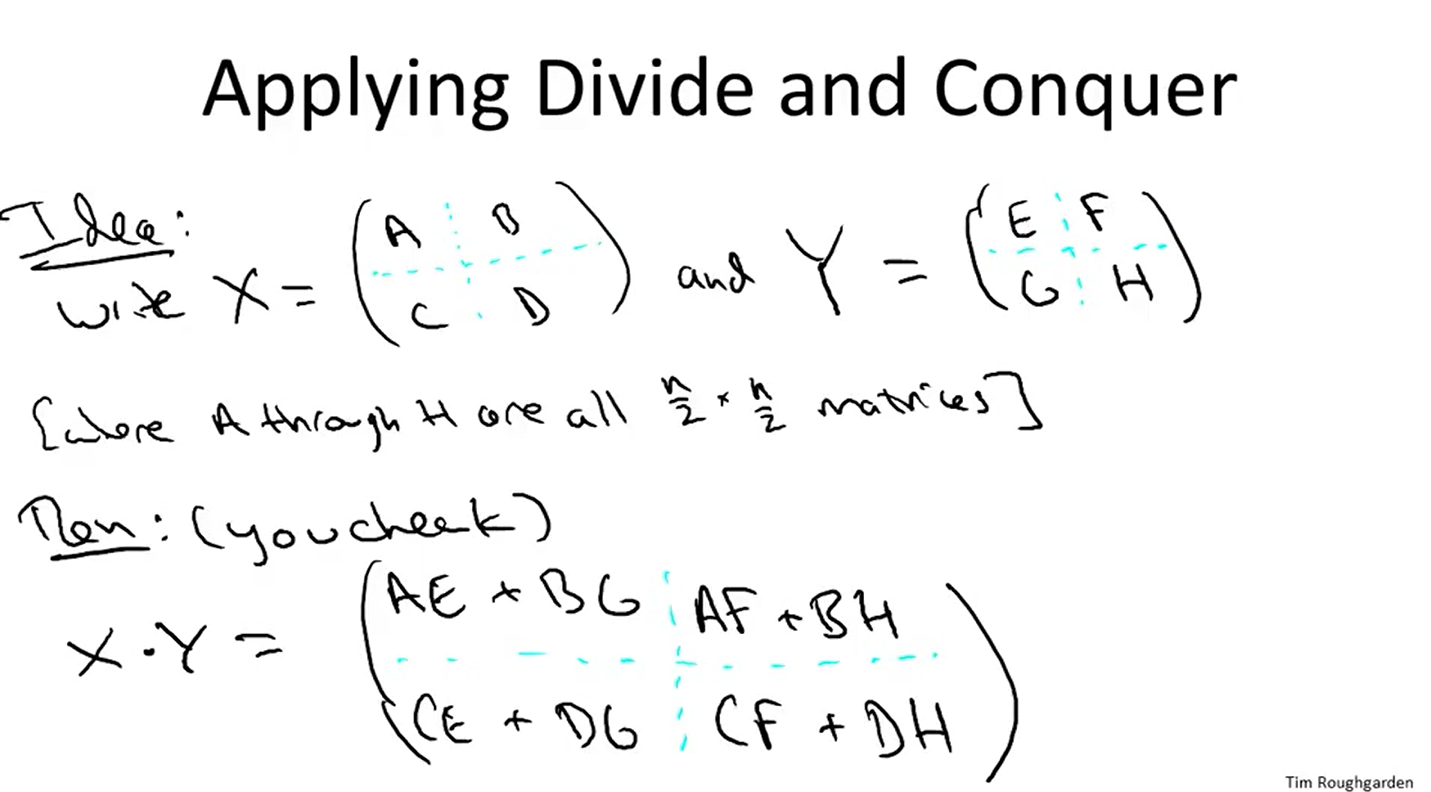 Applying Divide and Conquer
Idea:
write X = (A B and Y = (E F
C D) G H)
[where A through H are all n/2 × n/2 matrices]
Then: (you check)
X · Y = (AE + BG AF + BH
CE + DG CF + DH)
Tim Roughgarden